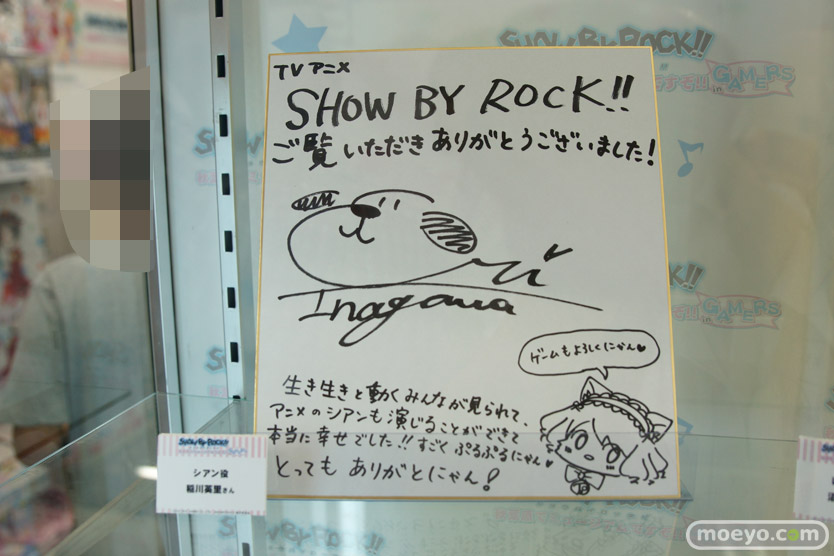 TVアニメ
SHOW BY ROCK!!
ご覧いただきありがとうございました!
Inagawa
ゲームもよろしくにゃん♥
生き生きと動くみんなが見られて、
アニメのシアンも演じることができて
本当に幸せでした!!すごくぷるぷるにゃん♥
とってもありがとにゃん!
SHOW BY ROCK!!
シアン役
稲川英里さん
SHOW BY ROCK!!
in GAMERS
SHOW BY ROCK!!
in GAMERS
moeyo.com